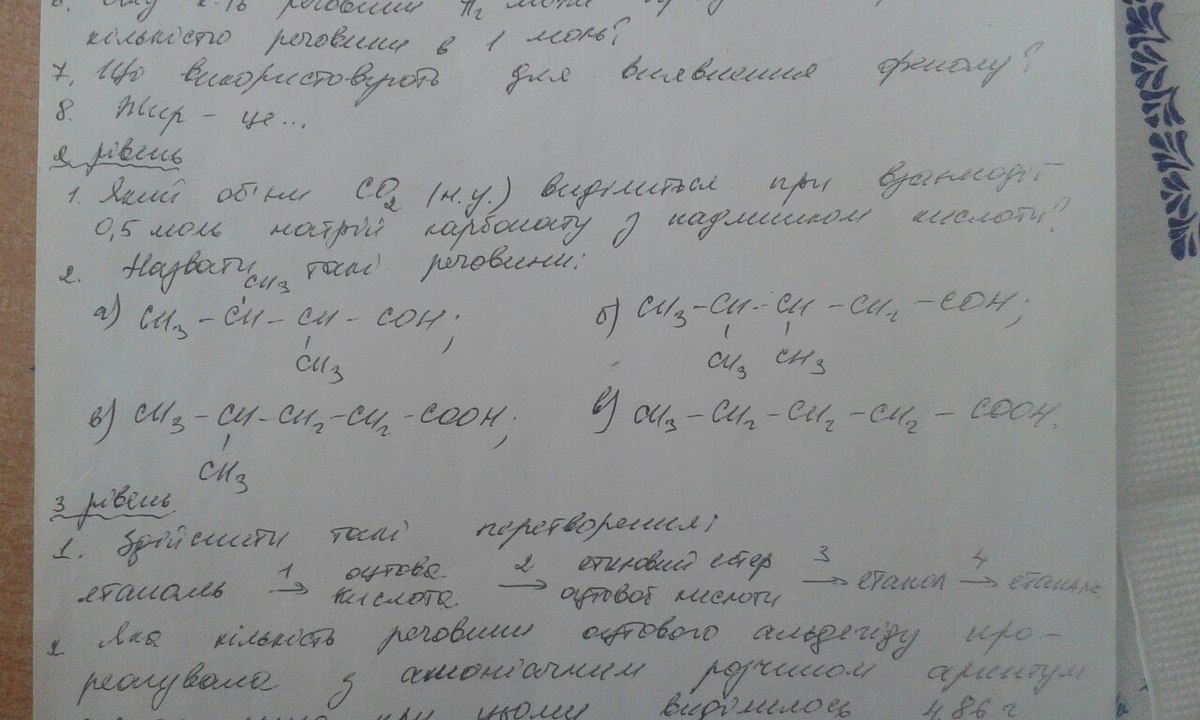 кількістю речовини в 1 моль?
7. Що використовують для виявлення фенолу?
8. Жир – це...
2 рівень
1. Який об'єм CO2 (н.у.) виділиться при взаємодії
0,5 моль натрій карбонату з надлишком кислоти?
2. Назвати такі речовини:
CH3
а) CH3 – CH – CH – COH; б) CH3 – CH – CH – CH2 – COH;
CH3 CH3 CH3
в) CH3 – CH – CH2 – CH2 – COOH; г) CH3 – CH2 – CH2 – CH2 – COOH.
CH3
3 рівень
1. Здійснити такі перетворення:
етаналь 1→ оцтова кислота 2→ етиловий естер оцтової кислоти 3→ етанол 4→
2. Яка кількість речовини оцтового альдегіду про-
реагувала з амоніачним розчином аргентум
при цьому виділилось 4,86 г